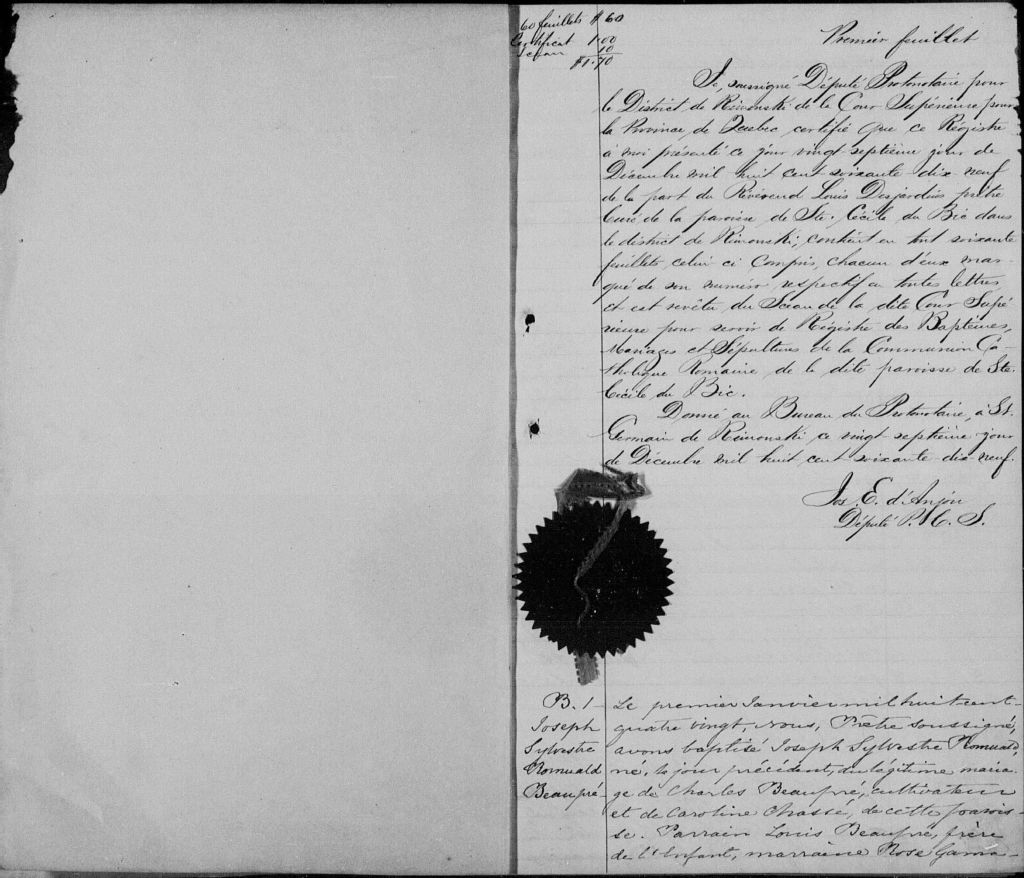 60 feuillets $ 60
Certificat 1.00
Sceau 10
$1.70
Premier feuillet
Je, soussigné Député Protonotaire pour
le District de Rimouski de la Cour Supérieure pour
la Province de Quebec certifie que ce Régistre
à moi présenté ce jour vingt-septième jour de
Décembre mil huit cent soixante-dix-neuf
de la part du Révérend Louis Desjardins prêtre
Curé de la paroisse de Ste. Cécile du Bic dans
le district de Rimouski; contient en tout soixante
feuillets celui ci Compris, chacun d'eux mar-
qué de son numéro respectif en toutes lettres
et est revêtu du Sceau de la dite Cour Supé-
rieure pour servir de Régistre des Baptêmes,
Mariages et Sépultures de la Communion Ca-
tholique Romaine de la dite paroisse de Ste.
Cécile du Bic.
Donné au Bureau du Protonotaire, à St.
Germain de Rimouski ce vingt-septième jour
de Décembre mil huit cent soixante-dix-neuf.
Jos. E. d'Anjou
Député P. C. S.
B. 1
Joseph
Sylvestre
Romuald
Beaupré
Le premier Janvier mil huit cent-
quatre vingt, Nous, Prêtre soussigné,
avons baptisé Joseph Sylvestre Romuald,
né, le jour précédent, du légitime maria-
ge de Charles Beaupré, cultivateur
et de Caroline Chassé, de cette parois-
se. Parrain Louis Beaupré, frère
de l'Enfant, marraine Rose Gama-